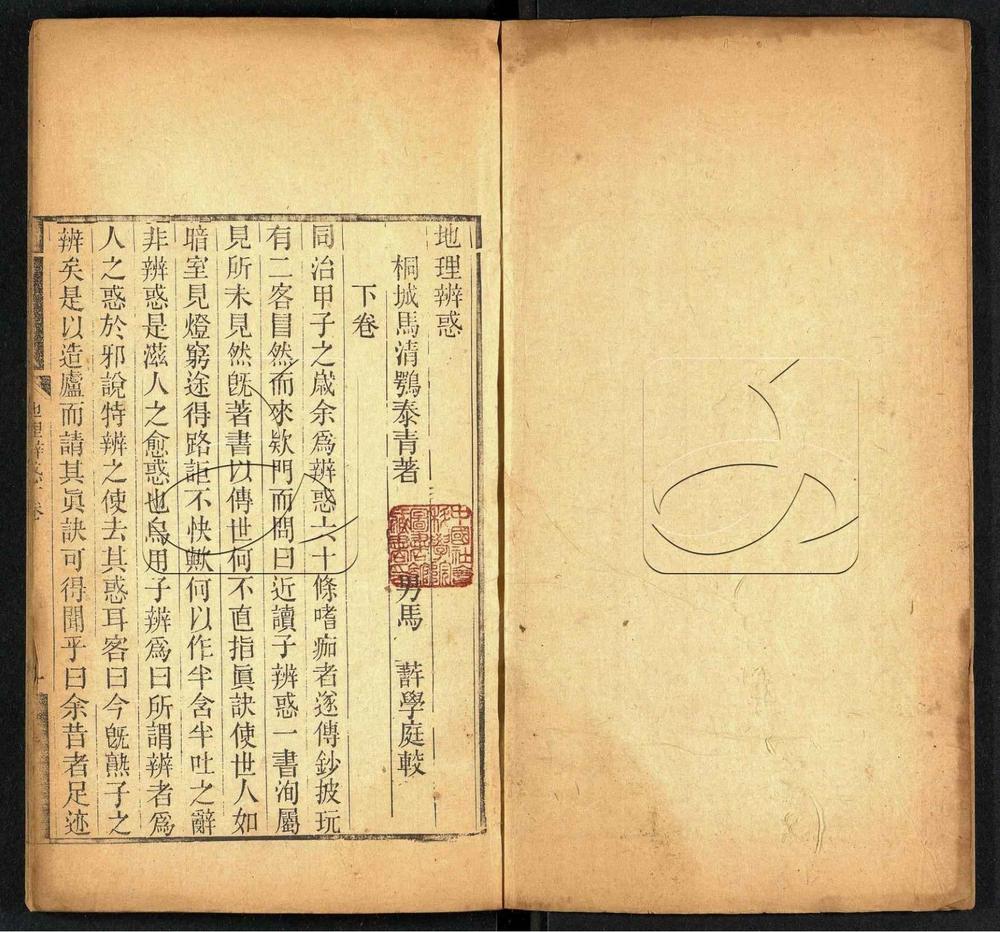 地理辨惑
桐城馬清鶚泰青著　男馬　蔪學庭較
下卷
同治甲子之歲余爲辨惑六十條嗜痂者遂傳鈔披玩
有二客冒然而來欵門而問曰近讀子辨惑一書洵屬
見所未見然旣著書以傳世何不直指眞訣使世人如
暗室見燈窮途得路詎不快歟何以作半含半吐之辭
非辨惑是滋人之愈惑也烏用子辨爲曰所謂辨者爲
人之惑於邪說特辨之使去其惑耳客曰今旣熟子之
辨矣是以造廬而請其眞訣可得聞乎曰余昔者足迹
地理辨惑下卷
中國社會
科學院
圖書館
藏書